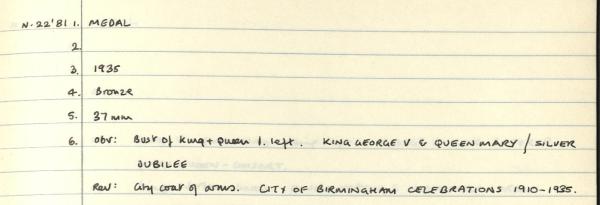 N.22'81 1. MEDAL
2
3. 1935
4. Bronze
5. 37 mm
6. obv: Bust of King + Queen l. left. KING GEORGE V & QUEEN MARY / SILVER
JUBILEE
Rev: City coat of arms. CITY OF BIRMINGHAM CELEBRATIONS 1910-1935.